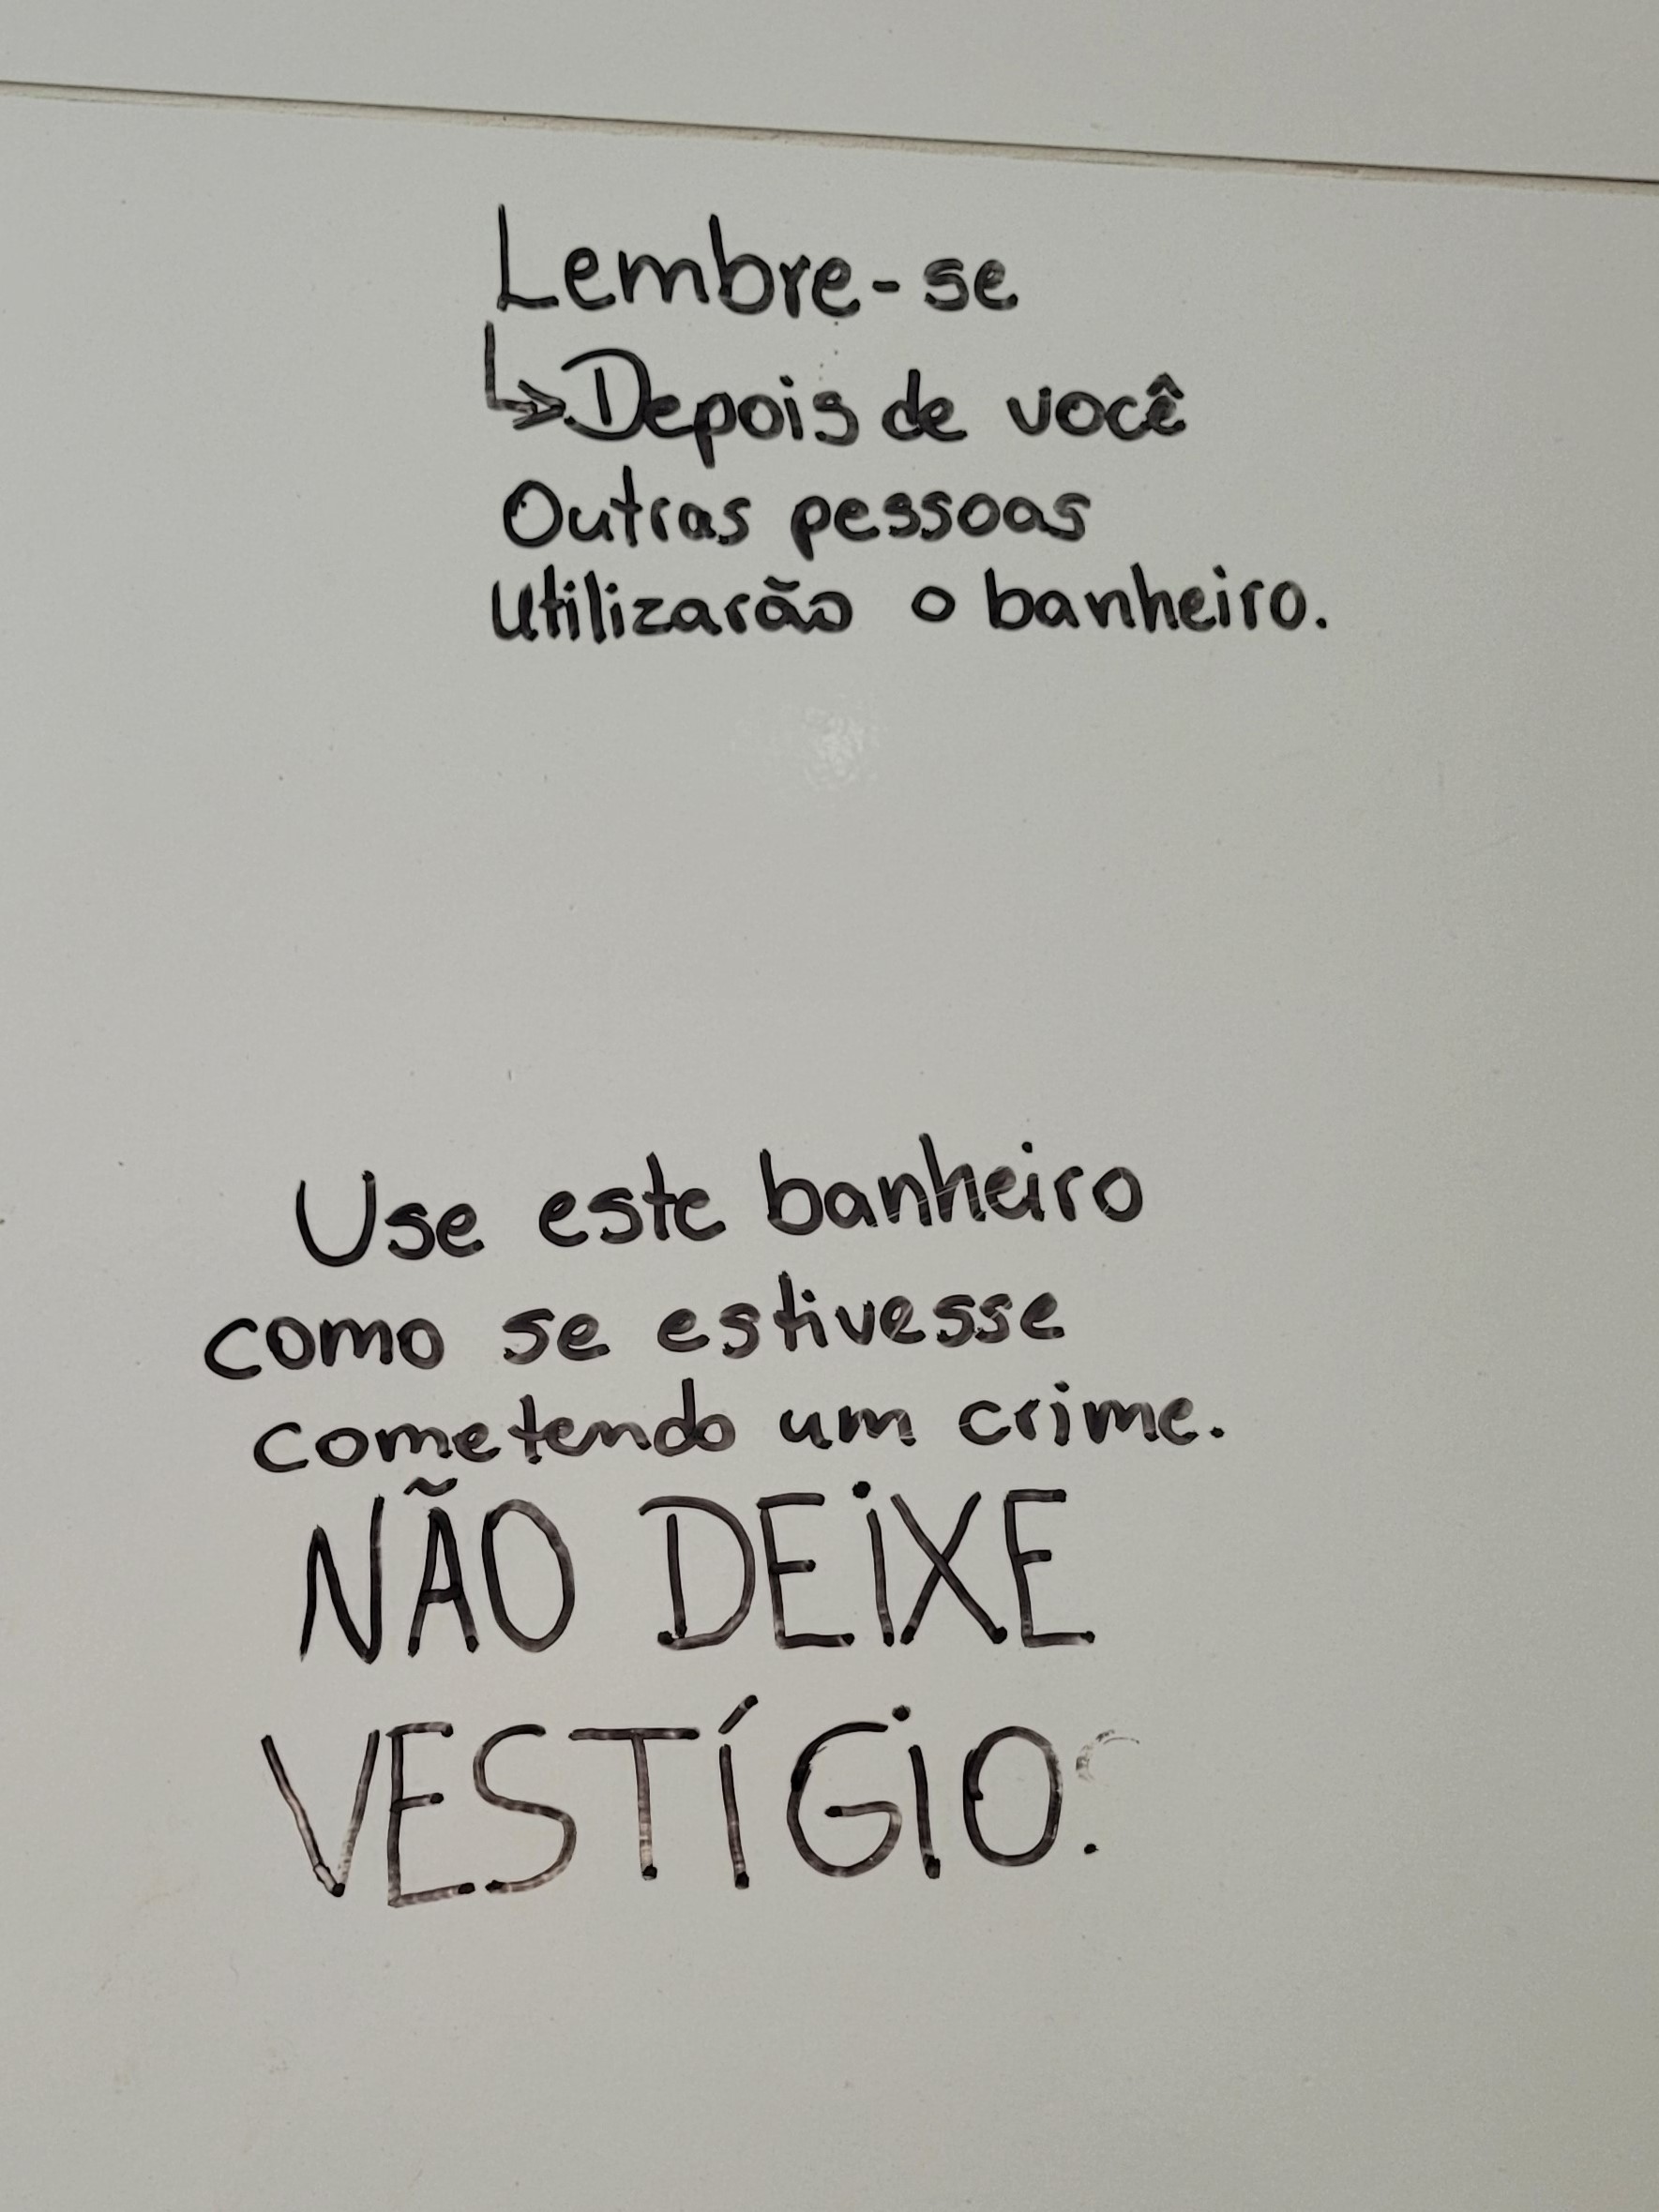 Lembre-se
↳Depois de você
Outras pessoas
Utilizarão o banheiro.
Use este banheiro
como se estivesse
cometendo um crime.
NÃO DEIXE
VESTÍGIO.